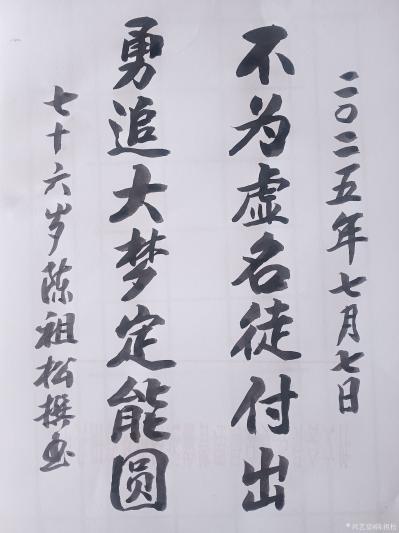 二〇二五年七月七日
不为虚名徒付出
勇追大梦定能圆
七十六岁陈祖松撰书